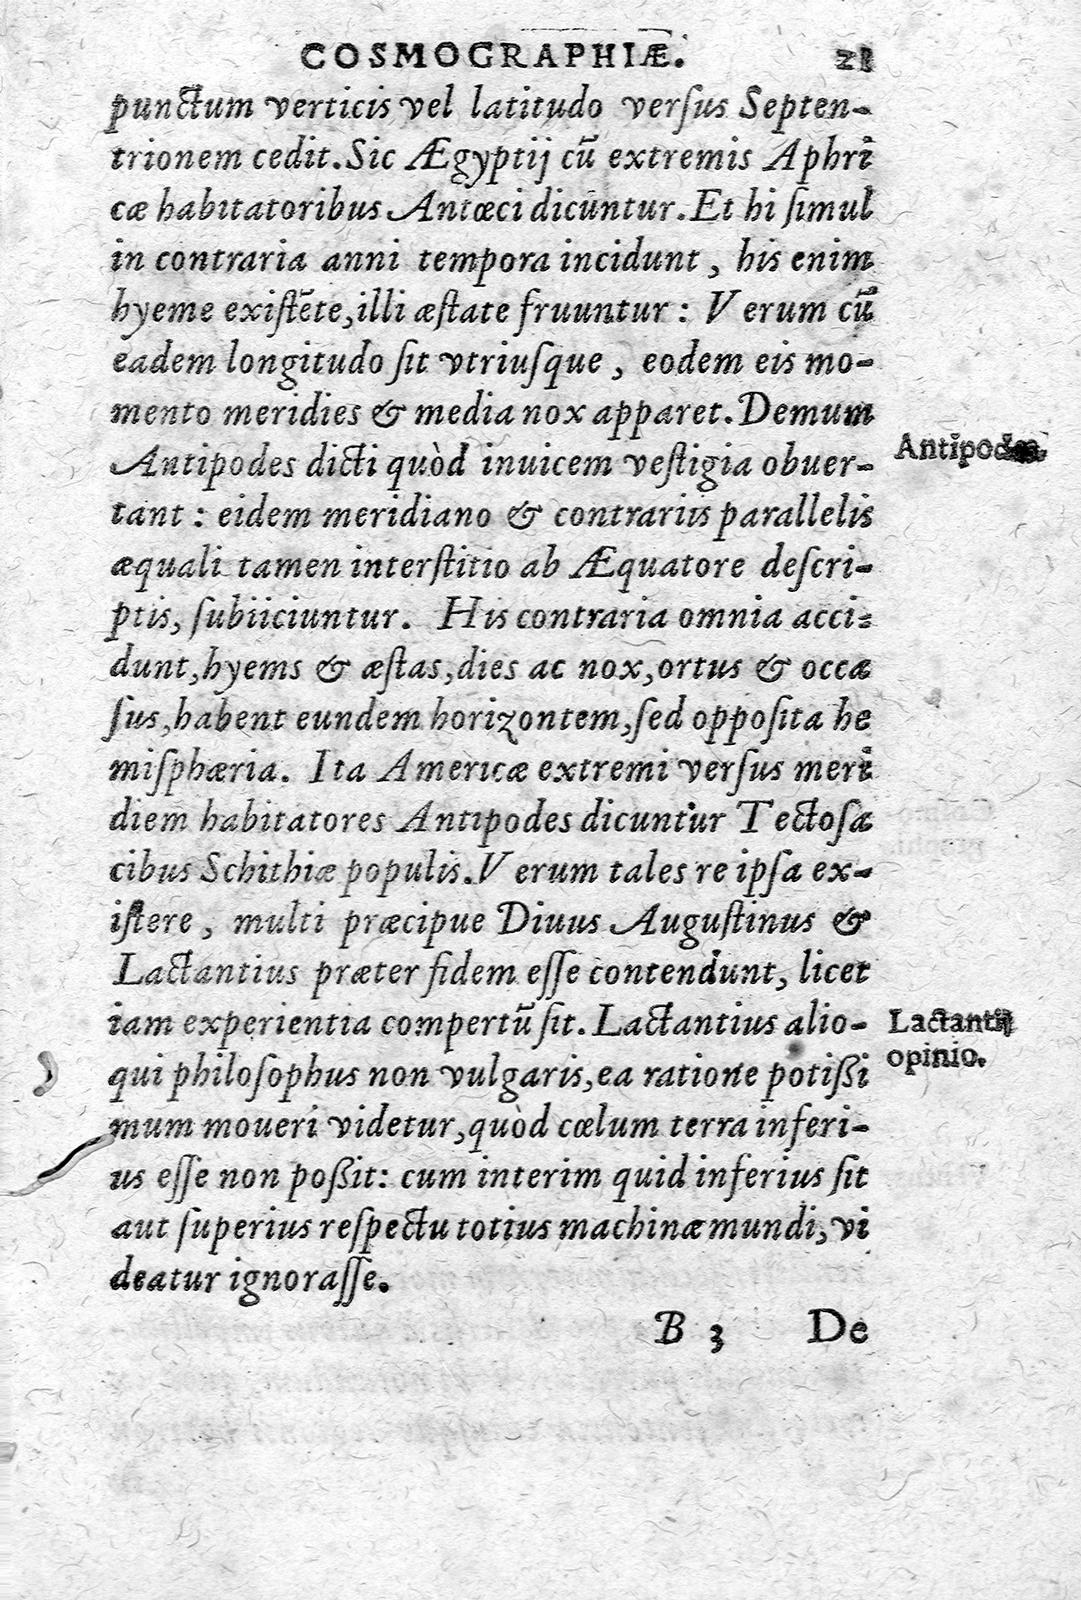 COSMOGRAPHIÆ. 21
punctum verticis vel latitudo verſus Septen-
trionem cedit. Sic Ægyptij cũ extremis Aphri
cæ habitatoribus Antœci dicuntur. Et hi ſimul
in contraria anni tempora incidunt, his enim
hyeme exiſtẽte, illi æſtate fruuntur: Verum cũ
eadem longitudo ſit vtriuſque, eodem eis mo-
mento meridies & media nox apparet. Demum
Antipodes dicti quòd inuicem veſtigia obuer-
Antipodes
tant: eidem meridiano & contrariis parallelis
æquali tamen interſtitio ab Æquatore deſcri-
ptis, ſubiiciuntur. His contraria omnia acci-
dunt, hyems & æſtas, dies ac nox, ortus & occa
ſus, habent eundem horizontem, ſed oppoſita he
miſphæria. Ita Americæ extremi verſus meri
diem habitatores Antipodes dicuntur Tectoſa
cibus Schithiæ populis. Verum tales re ipſa ex-
iſtere, multi præcipue Diuus Auguſtinus &
Lactantius præter fidem eſſe contendunt, licet
iam experientia compertũ ſit. Lactantius alio-
Lactantii
qui philoſophus non vulgaris, ea ratione potißi
opinio.
mum moueri videtur, quòd cœlum terra inferi-
us eſſe non poßit: cum interim quid inferius ſit
aut ſuperius reſpectu totius machinæ mundi, vi
deatur ignoraſſe.
B 3 De